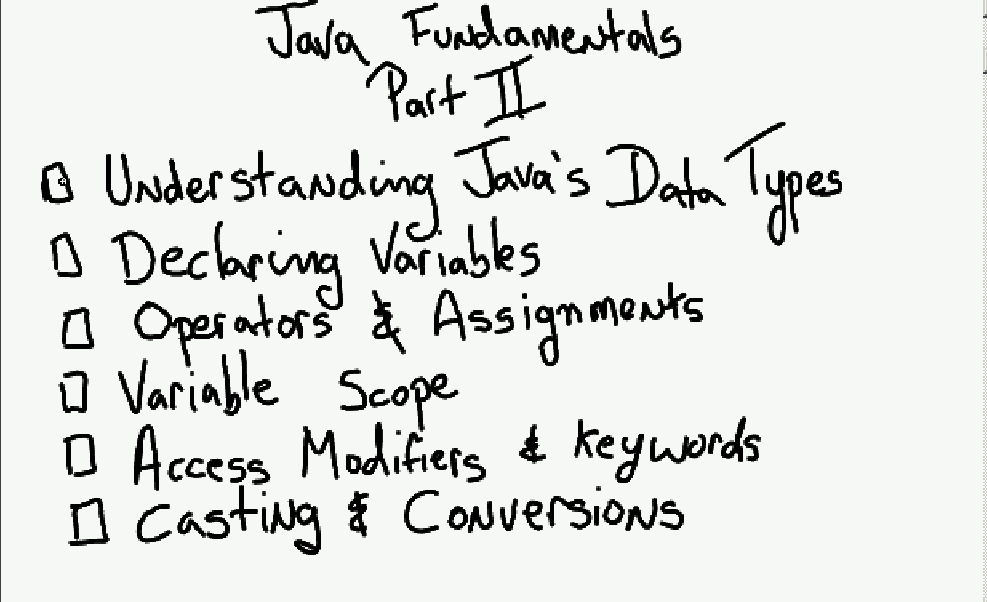 Java Fundamentals
Part II
Understanding Java's Data Types
Declaring Variables
Operators & Assignments
Variable Scope
Access Modifiers & keywords
Casting & Conversions